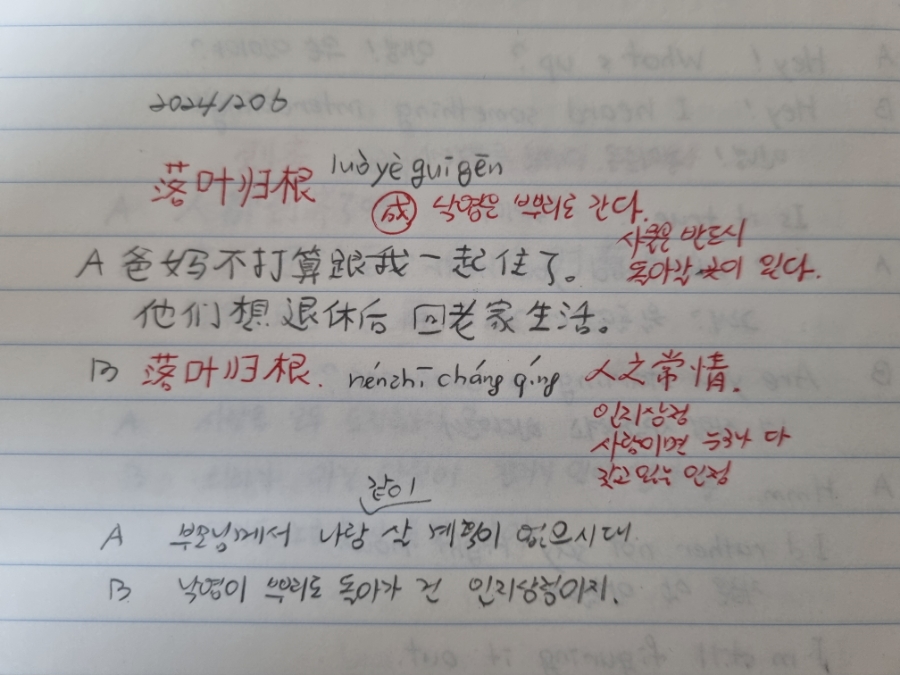 20241206
落叶归根 luòyè guīgēn
成 낙엽은 뿌리로 간다.
사물은 반드시
돌아갈 곳이 있다.
A 爸妈不打算跟我一起住了。
他们想退休后回老家生活。
B 落叶归根. nénzhī cháng qíng 人之常情.
인지상정
사람이면 누구나 다
갖고 있는 인정
같이
A 부모님께서 나랑 살 계획이 없으시대.
B. 낙엽이 뿌리로 돌아가 건 인지상정이지.